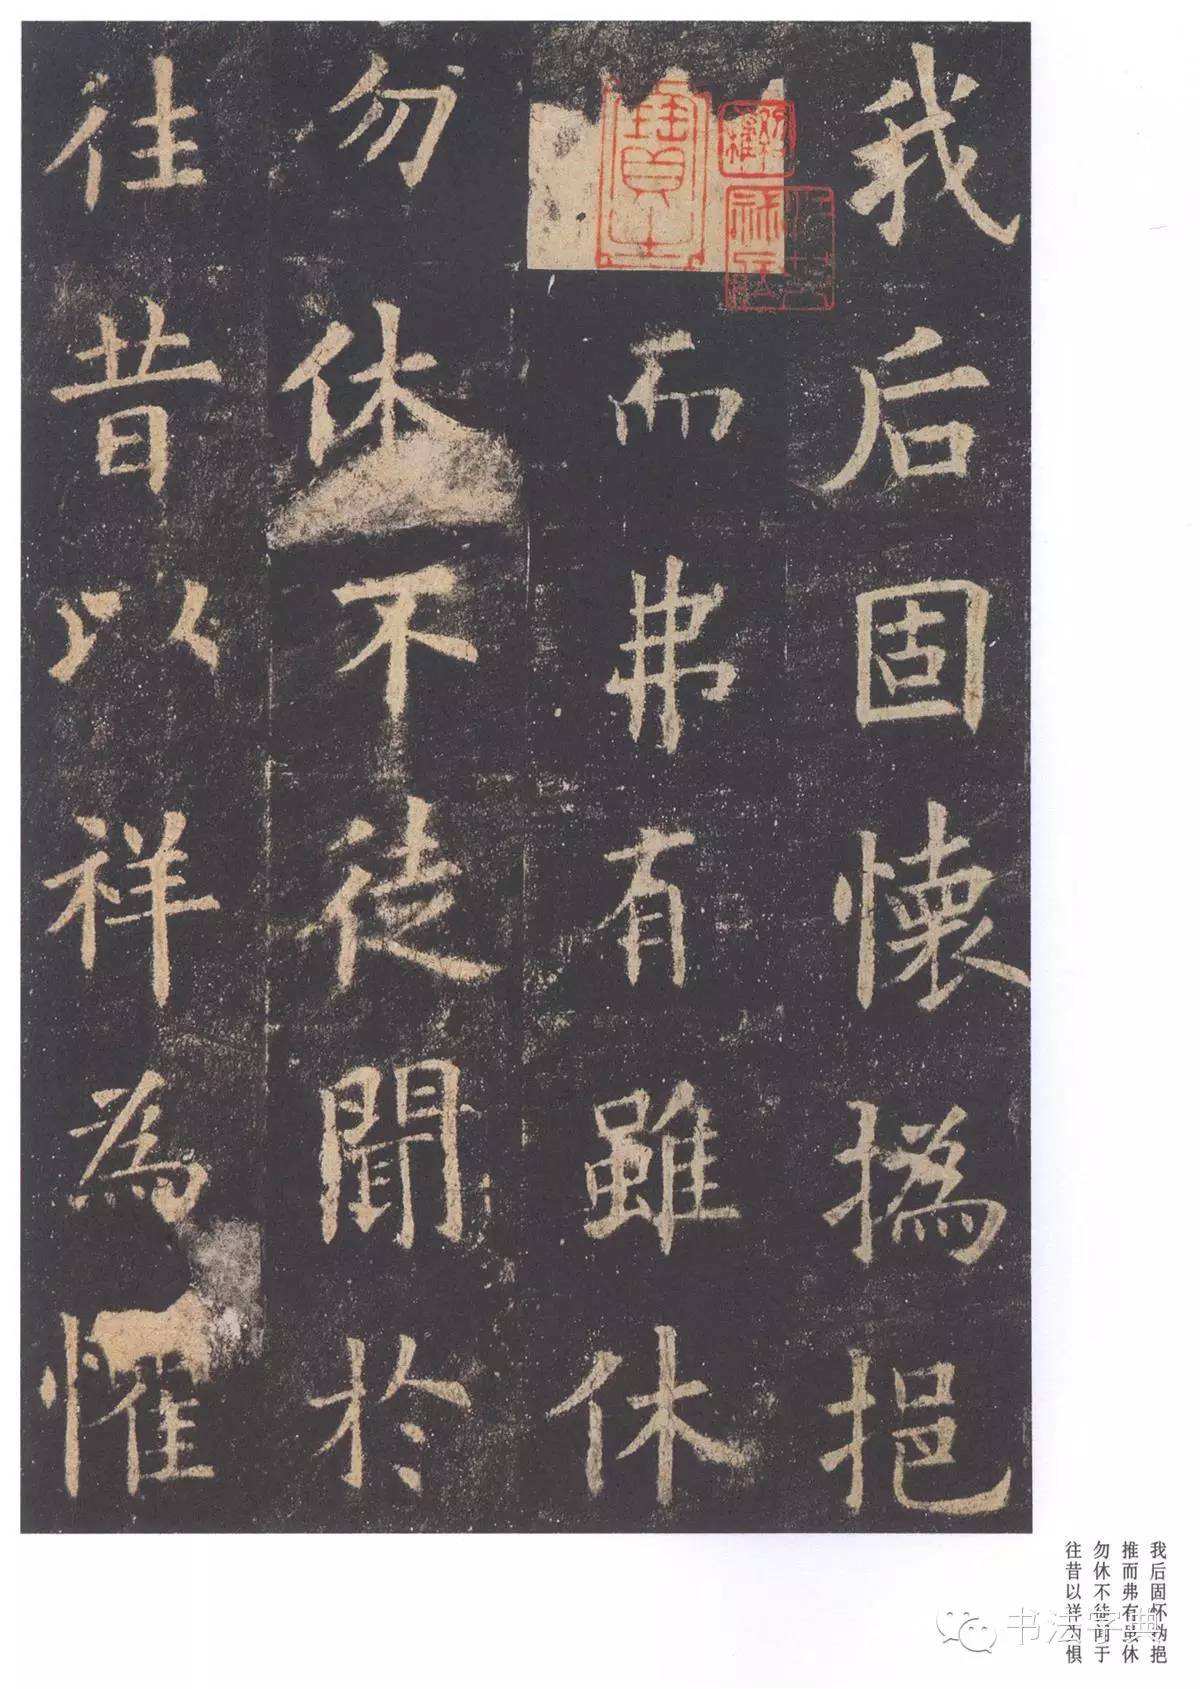 我后固懷撝挹
而弗有雖休
勿休不徒聞於
往昔以祥為懼
寶
我后固怀㧑挹
推而弗有虽休
勿休不徒闻于
往昔以祥为惧
书法字典